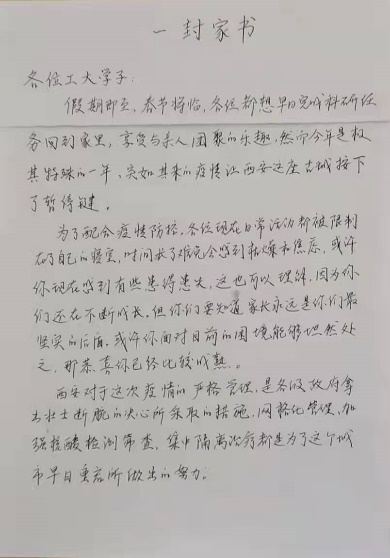 一封家书
各位工大学子:
假期即至，春节将临，各位都想早日完成科研任
务回到家里，享受与亲人团聚的乐趣，然而今年是极
其特殊的一年、突如其来的疫情让西安这座古城按下
了暂停键。
为了配合疫情防控，各位现在日常活动都被限制
在了自己的寝室，时间长了难免会感到枯燥和焦虑，或许
你现在感到有些患得患失，这也可以理解，因为你
们还在不断成长，但你们要知道家长永远是你们最
坚实的后盾，或许你面对目前的困境能够坦然处
之，那恭喜你已经比较成熟。
西安对于这次疫情的严格管理，是各级政府拿
出壮士断腕的决心所采取的措施，网格化管理、加
强核酸检测筛查，集中隔离治疗都是为了这个城
市早日重启所做出的努力。